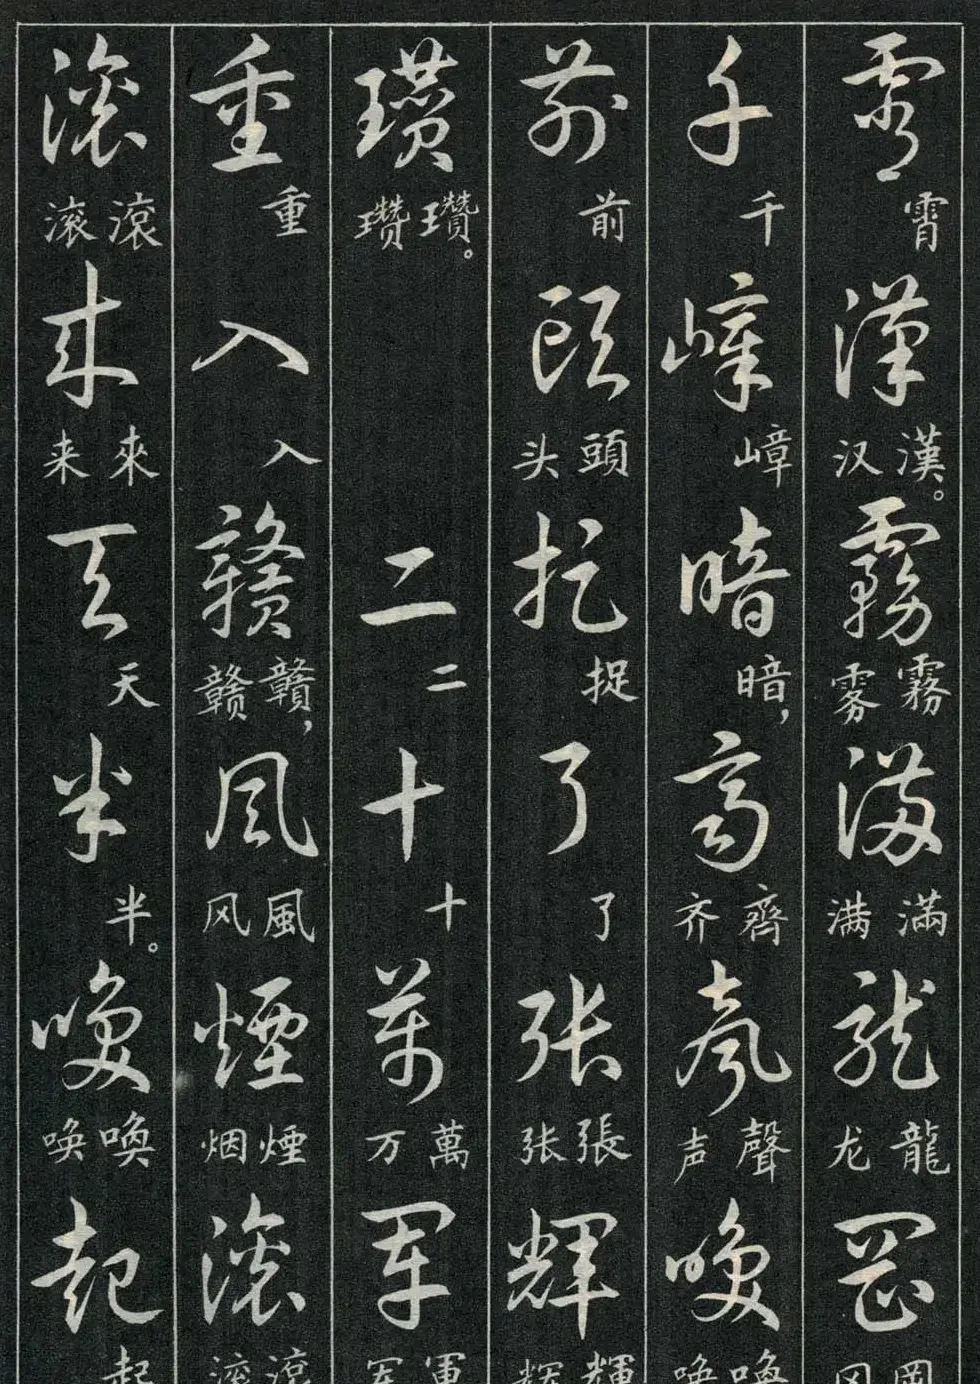 霄 霄 漢 漢。汉 霧 霧 雾 滿 滿 满 龍 龍 龙 岡 岡 冈
千 千 嶂 嶂 暗 暗， 齊 齊 齐 聲 聲 声 喚 喚 唤
前 前 頭 頭 头 捉 捉 了 了 張 張 张 輝 輝 辉
瓚 瓚。瓒 二 二 十 十 萬 萬 万 軍 軍 军
重 重 入 入 贛 贛，赣 風 風 风 煙 煙 烟 滾 滾 滚
滾 滾 滚 來 來 来 天 天 半 半。 喚 喚 唤 起 起